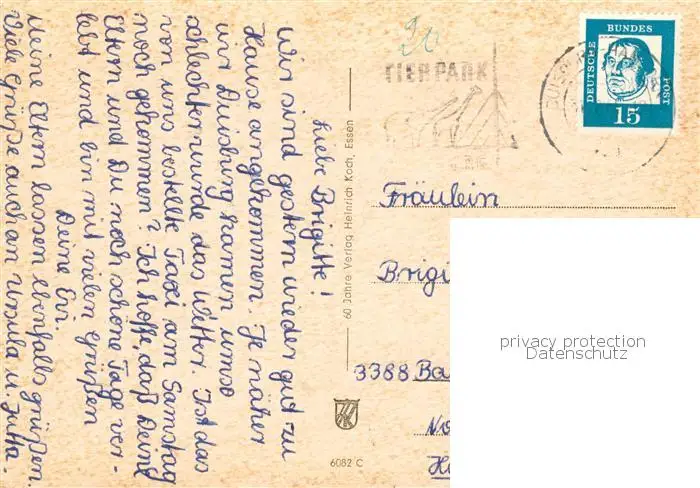 Liebe Brigitte!
Wir sind gestern wieder gut zu
Hause angekommen. Je näher
wir Duisburg kamen, umso
schlechter wurde das Wetter. Ist das
von uns bestellte Taxi am Samstag
noch gekommen? Ich hoffe, daß Deine
Eltern und Du noch schöne Tage ver-
lebt und bin mit vielen Grüßen
Deine Evi.
Meine Eltern lassen ebenfalls grüßen.
Viele Grüße auch an Ursula u. Jutta.
60 Jahre Verlag Heinrich Koch, Essen
6082 C
20
TIERPARK
DEUTSCHE
BUNDES
POST
15
Fräulein
Brigi
3388 Ba
No
H
privacy protection
Datenschutz